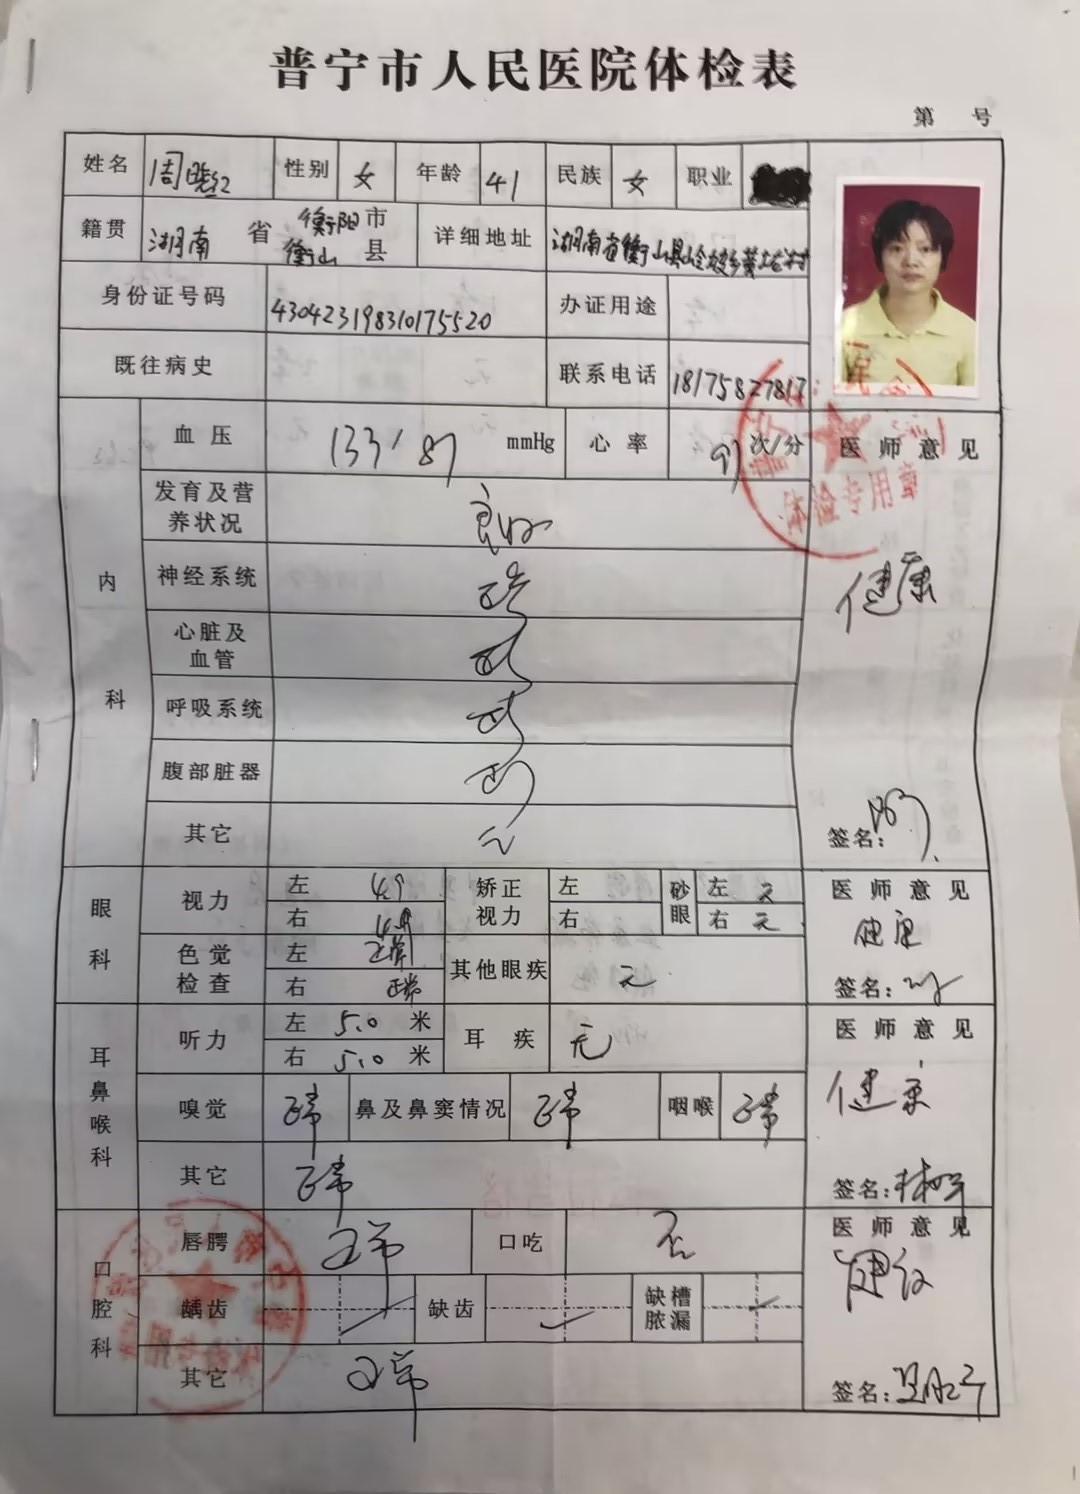 普宁市人民医院体检表
第 号
姓名 周晓红 性别 女 年龄 41 民族 女 职业
籍贯 湖南 省 衡阳 市 衡山 县 详细地址 湖南省衡山县岭坡乡黄塔村
身份证号码 430423198310175520 办证用途
既往病史 联系电话 18175827817
内科
血压 133/87 mmHg 心率 91 次/分 医师意见
发育及营养状况 良好
神经系统
健康
心脏及血管
呼吸系统
腹部脏器
其它
签名:
眼科
视力 左 4.9 矫正视力 左 砂眼 左 无 医师意见
右 4.9 右 右 无
健康
色觉检查 左 正常 其他眼疾 无
右 正常
签名:
耳鼻喉科
听力 左 5.0 米 耳疾 无 医师意见
右 5.0 米
嗅觉 正常 鼻及鼻窦情况 正常 咽喉 正常
健康
其它 正常
签名:
口腔科
唇腭 正常 口吃 否 医师意见
龋齿 缺齿 缺槽脓漏
健康
其它 正常
签名:
体检专用章